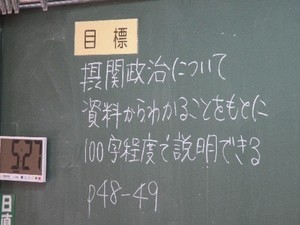 目標
摂関政治について
資料からわかることをもとに
100字程度で説明できる
p48-49
5:27
日直